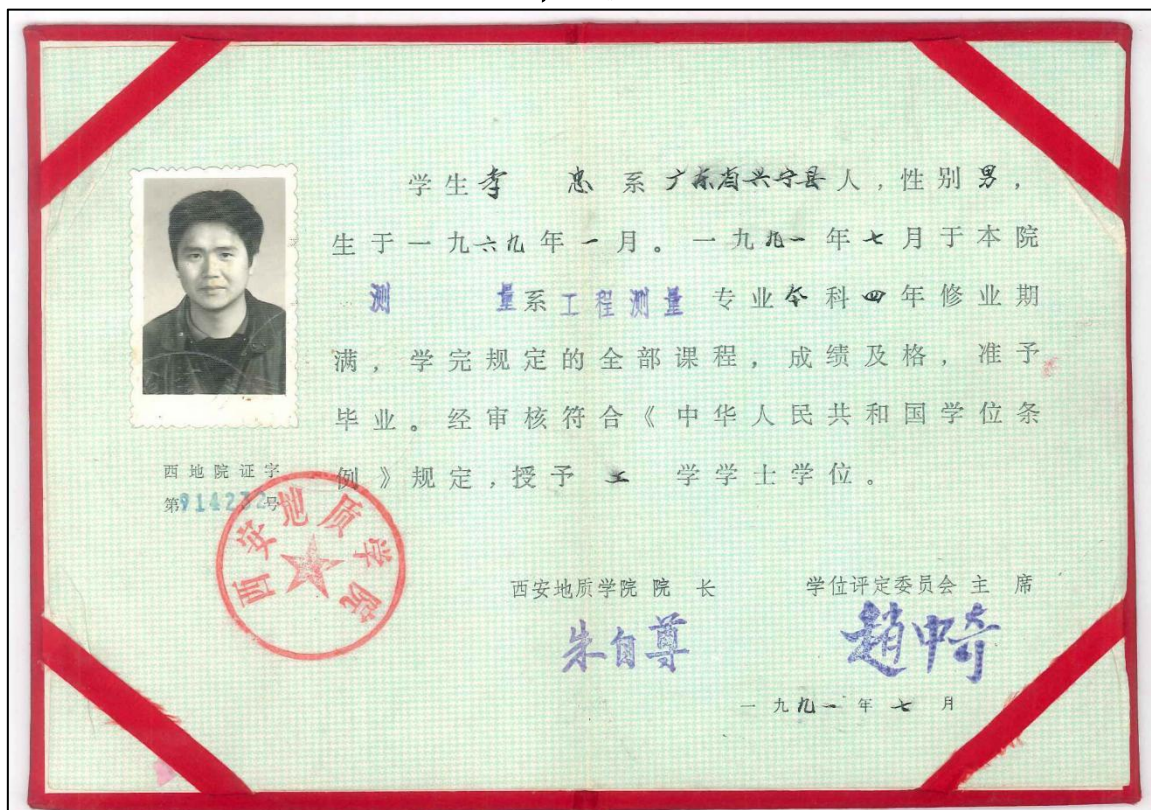 学生李 忠 系广东省兴宁县人，性别男，
生于一九六九年一月。一九九一年七月于本院
测 量系工程测量 专业本科四年修业期
满，学完规定的全部课程，成绩及格，准予
毕业。经审核符合《中华人民共和国学位条
例》规定，授予 工 学学士学位。
西地院证字
第914232号
西安地质学院
西安地质学院 院 长 学位评定委员会 主 席
朱自尊 趙中奇
一九九一年七月